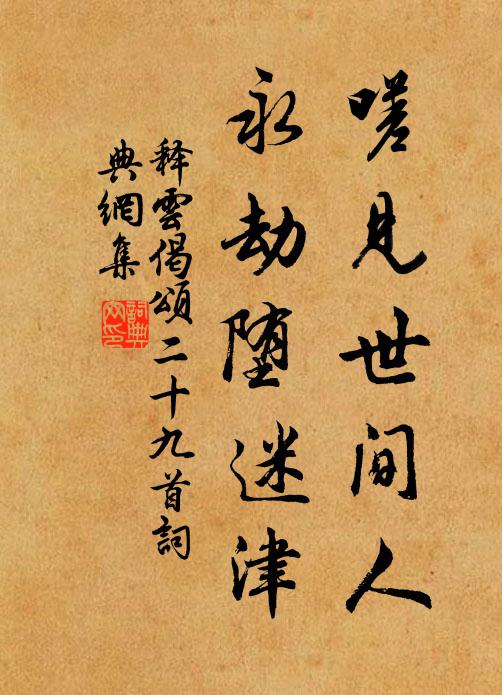 嗟見世间人
永劫堕迷津
释雲偈頌二十九首詞
典網集
詞典
网印